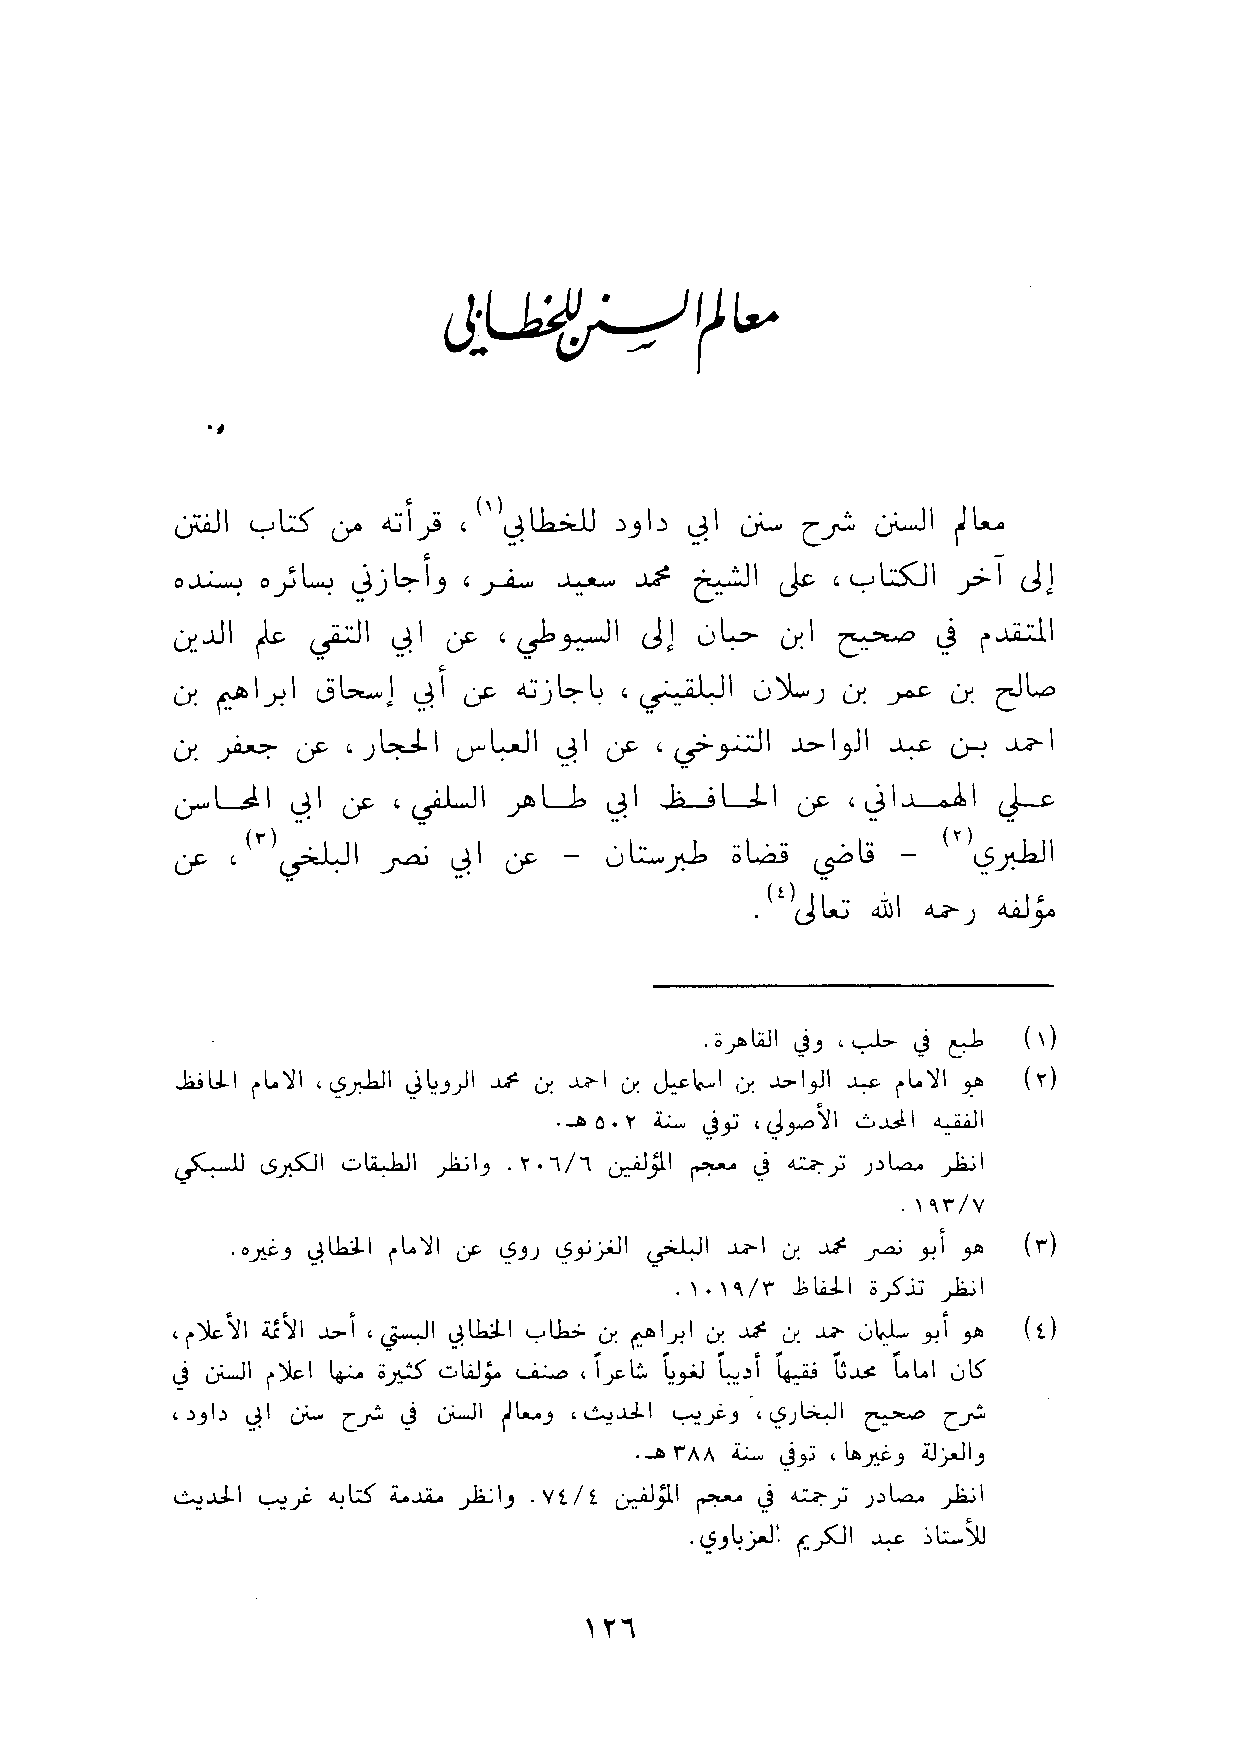 معالم السنن للخطابي
معالم السنن شرح سنن ابي داود للخطابي(١)، قرأته من كتاب الفتن
إلى آخر الكتاب، على الشيخ محمد سعيد سفر، وأجازني بسائره بسنده
المتقدم في صحيح ابن حبان إلى السيوطي، عن ابي التقي علم الدين
صالح بن عمر بن رسلان البلقيني، باجازته عن أبي إسحاق ابراهيم بن
احمد بن عبد الواحد التنوخي، عن ابي العباس الحجار، عن جعفر بن
علي الهمداني، عن الحافظ ابي طاهر السلفي، عن ابي المحاسن
الطبري(٢) - قاضي قضاة طبرستان - عن ابي نصر البلخي(٣)، عن
مؤلفه رحمه الله تعالى(٤).
(١) طبع في حلب، وفي القاهرة.
(٢) هو الامام عبد الواحد بن اسماعيل بن احمد بن محمد الروياني الطبري، الامام الحافظ
الفقيه المحدث الأصولي، توفي سنة ٥٠٢ هـ.
انظر مصادر ترجمته في معجم المؤلفين ٢٠٦/٦. وانظر الطبقات الكبرى للسبكي
١٩٣/٧.
(٣) هو أبو نصر محمد بن احمد البلخي الغزنوي روي عن الامام الخطابي وغيره.
انظر تذكرة الحفاظ ١٠١٩/٣.
(٤) هو أبو سليمان حمد بن محمد بن ابراهيم بن خطاب الخطابي البستي، أحد الأئمة الأعلام،
كان اماماً محدثاً فقيهاً أديباً لغوياً شاعراً، صنف مؤلفات كثيرة منها اعلام السنن في
شرح صحيح البخاري، وغريب الحديث، ومعالم السنن في شرح سنن ابي داود،
والعزلة وغيرها، توفي سنة ٣٨٨ هـ.
انظر مصادر ترجمته في معجم المؤلفين ٧٤/٤. وانظر مقدمة كتابه غريب الحديث
للأستاذ عبد الكريم العزباوي.
١٢٦